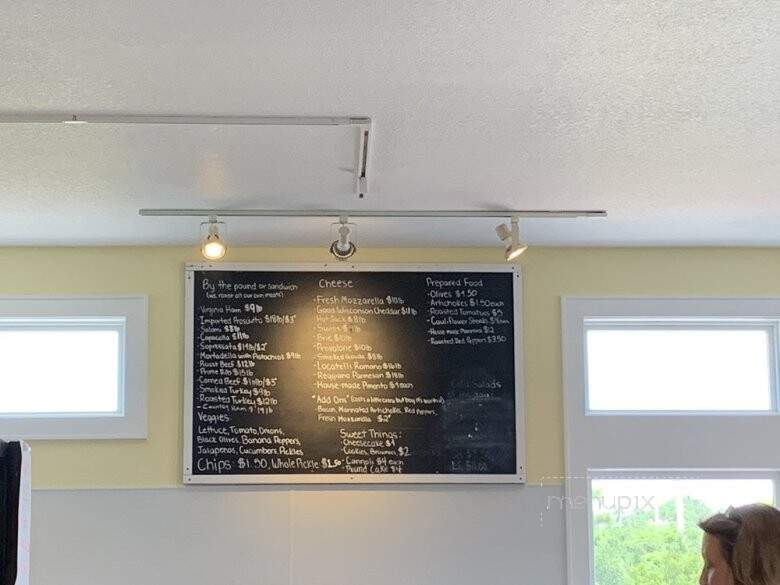 By the pound or sandwich
(we roast all our own meats)
Virginia Ham $9lb
Imported Prosciutto $18lb/$3
Salami $8lb
Capocolla $11lb
Sopressata $14lb/$2
Mortadella with Pistachios $9lb
Roast Beef $12lb
Prime Rib $15lb
Corned Beef $10lb/$3
Smoked Turkey $9lb
Roasted Turkey $12lb
Country Ham $19lb
Veggies:
Lettuce, Tomato, Onions,
Black Olives, Banana Peppers,
Jalapenos, Cucumbers, Pickles
Chips: $1.50, Whole Pickle: $1.50
Cheese
Fresh Mozzarella $10lb
Good Wisconsin Cheddar
Hot Jack $8lb
Swiss
Brie $10lb
Provolone $10lb
Smoked Gouda $8lb
Locatelli Romano $16lb
Reggiano Parmesan $18lb
House-made Pimento $7 each
"Add Ons" (costs a little extra but boy it's worth it)
Bacon, Marinated Artichokes, Red peppers,
Fresh Mozzarella $2
Sweet Things:
Cheesecake $4
Cookies, Brownies $2
Cannoli $4 each
Pound Cake $4
Prepared Food
Olives $1.50
Artichokes $1.50 each
Roasted Tomatoes $5
Cauliflower Steaks
House made Marinara $12
Roasted Red Peppers $3.50
Cold Salads
menupix